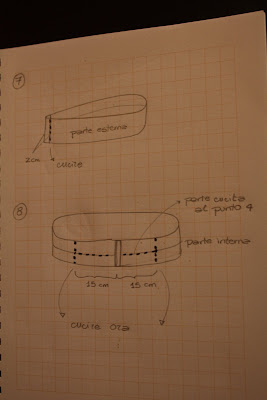 7
parte esterna
2cm
cucite
8
parte cucita
al punto 4
parte interna
15 cm
15 cm
cucite ora